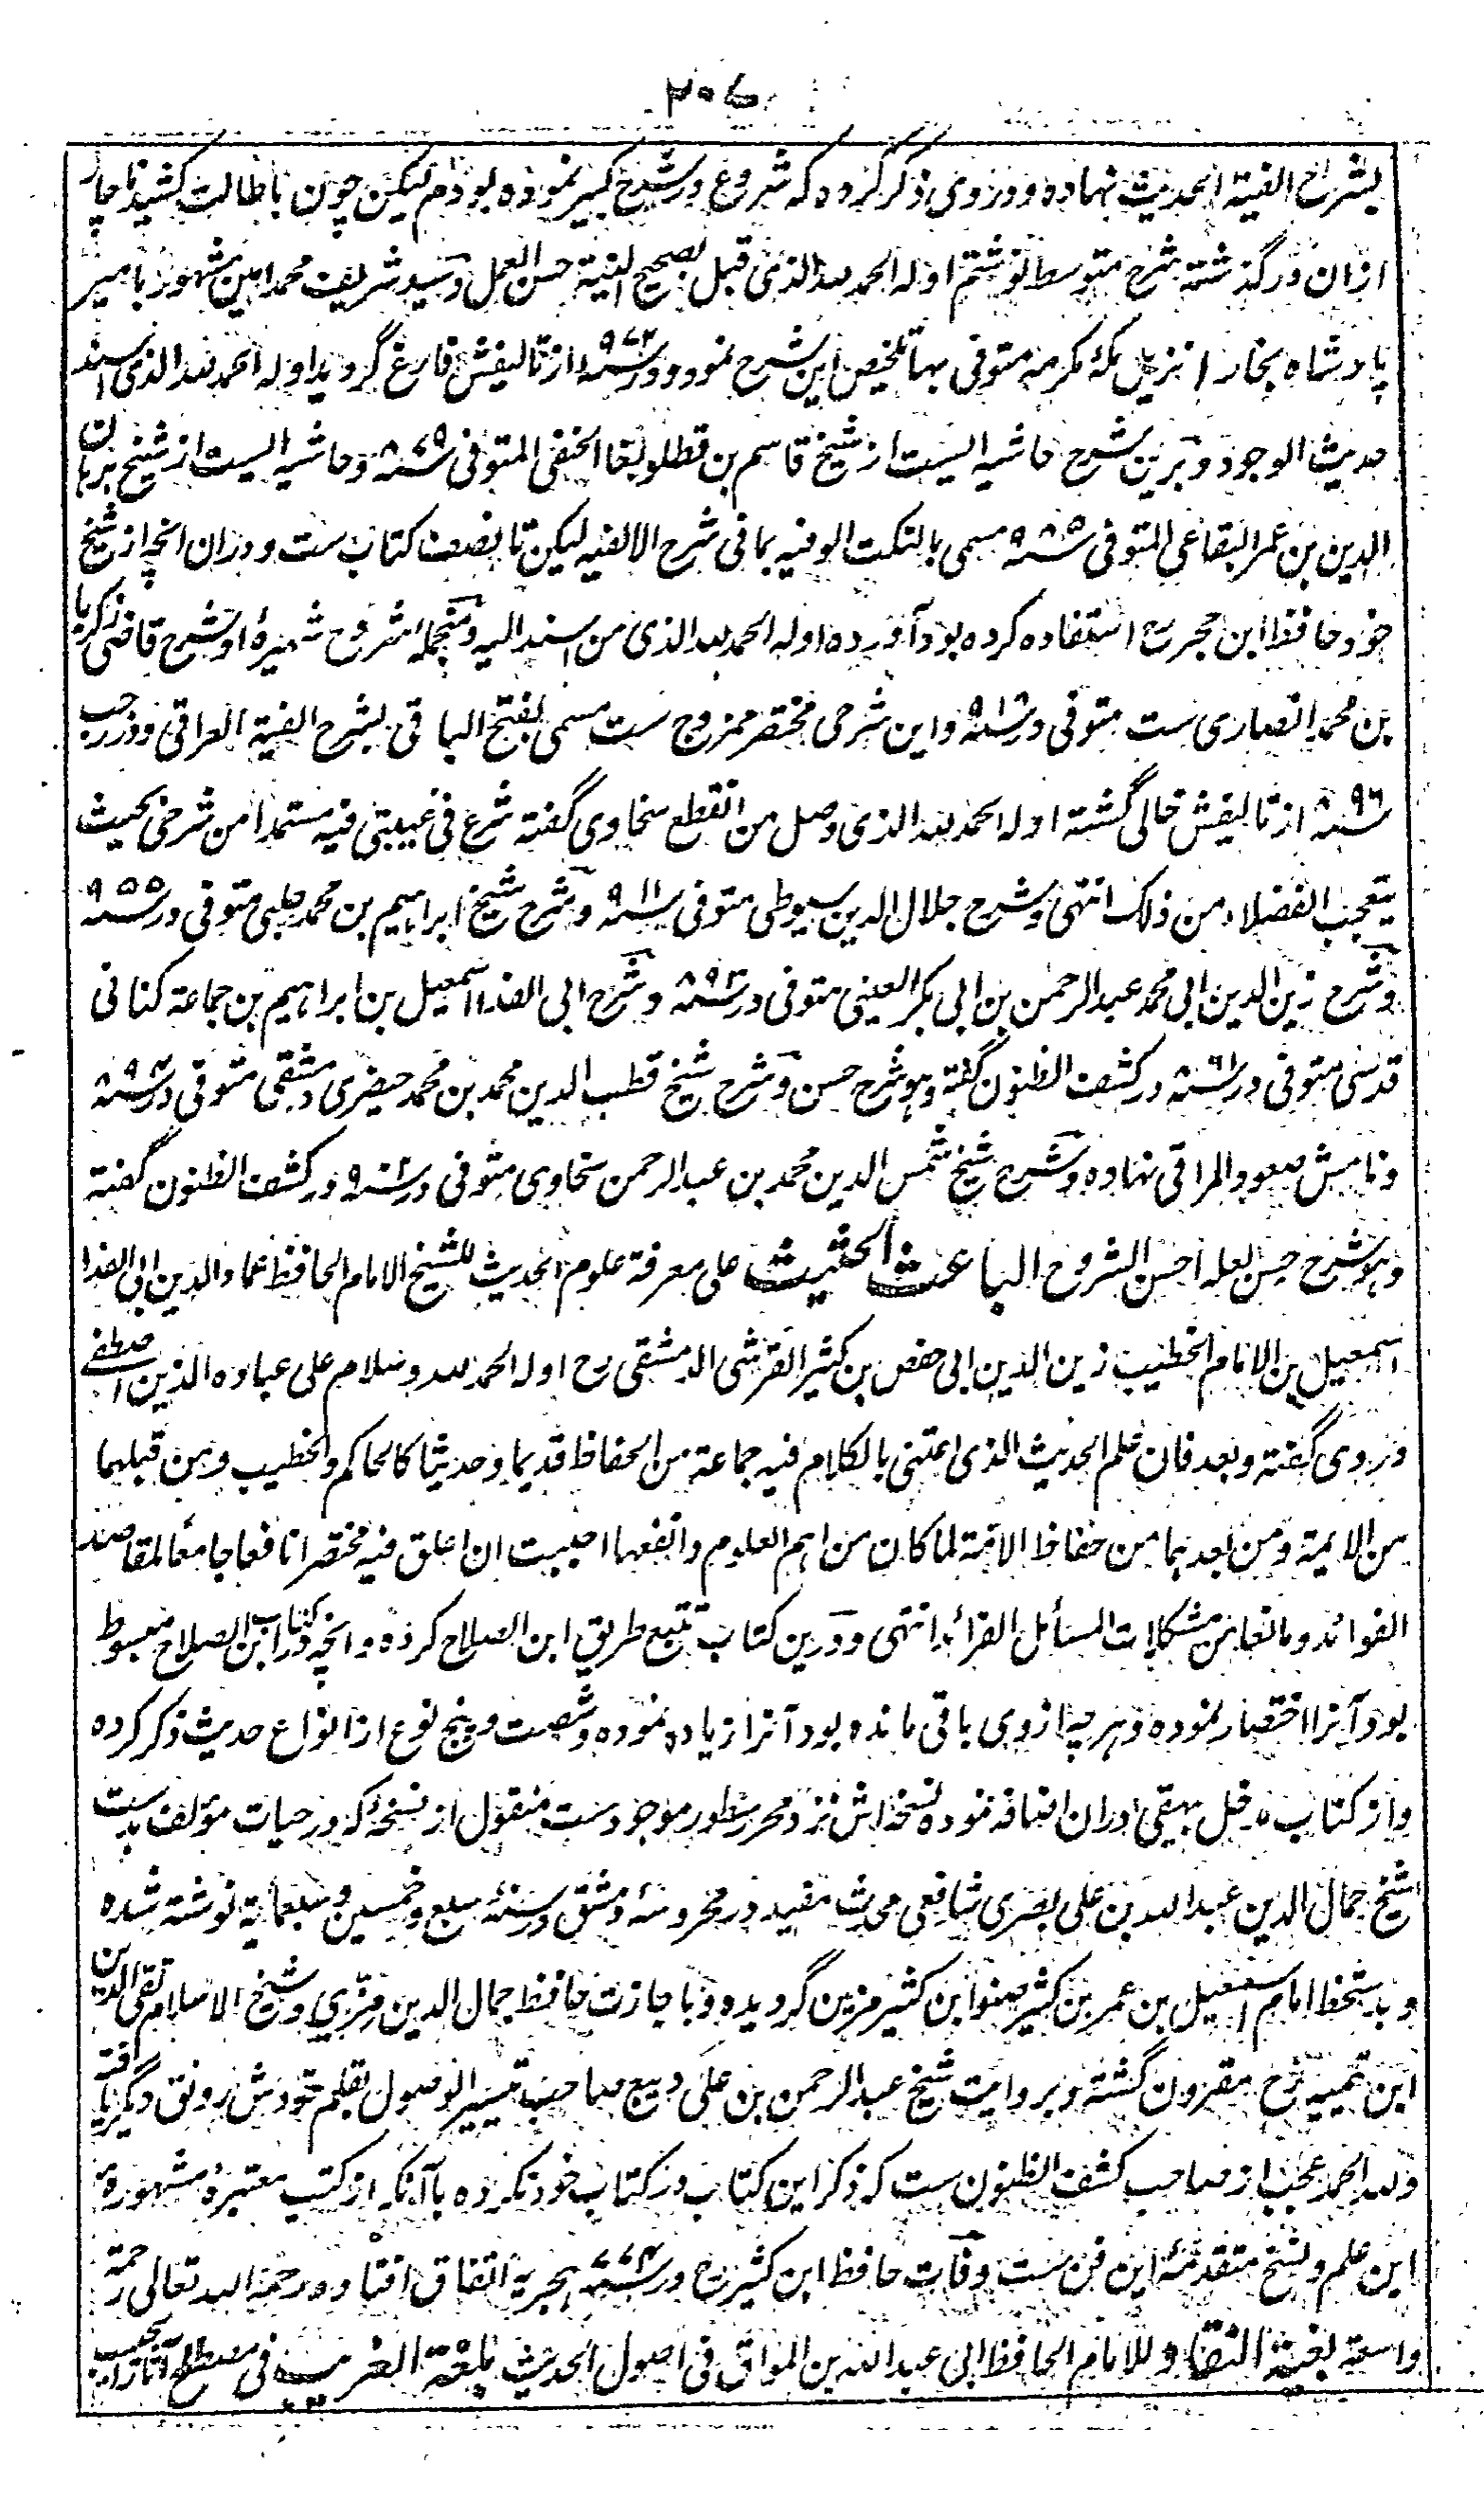 ۲۰۷
بشرح الفیة الحدیث نهاده و در وی ذکر کرده که شروع در شرح کبیر نموده بودم لیکن چون باطالت کشید ناچار
ازان درگذشته شرح متوسط نوشتم اوله الحمد لله الذی قبل بصحیح النیة حسن العمل و سید شریف محمد امین مشهور بامیر
پادشاه بخارا نزیل مکهٔ مکرمه متوفی بها تلخیص این شرح نمود و در سنه ۹۷۲ از تالیفش فارغ گردید اوله الحمد لله الذی اسند
حدیث الوجود و برین شرح حاشیه ایست از شیخ قاسم بن قطلوبغا الحنفی المتوفی سنه ۸۷۹ و حاشیه ایست از شیخ برهان
الدین بن عمر البقاعی المتوفی سنه ۸۸۵ مسمی بالنکت الوفیه بما فی شرح الالفیه لیکن تا نصف کتاب ست و دران انچه از شیخ
خود حافظ ابن حجر رح استفاده کرده بود آورده اوله الحمد لله الذی من اسند الیه و منجملهٔ شروح شهیرهٔ او شرح قاضی زکریا
بن محمد انصاری ست متوفی در سنه ۹۲۸ و این شرحی مختصر ممزوج ست مسمی بفتح الباقی بشرح الفیة العراقی و در رجب
سنه ۸۹۶ از تالیفش خالی گشته اوله الحمد لله الذی وصل من انقطع سخاوی گفته شرع فی غیبتی فیه مستمدا من شرحی بحیث
یتعجب الفضلاء من ذلک انتهی و شرح جلال الدین سیوطی متوفی سنه ۹۱۱ و شرح شیخ ابراهیم بن محمد حلبی متوفی در سنه ۹۵۵
و شرح زین الدین ابی محمد عبدالرحمن بن ابی بکر العینی متوفی در سنه ۸۹۳ و شرح ابی الفدا اسمعیل بن ابراهیم بن جماعة کنانی
قدسی متوفی در سنه ۸۶۱ در کشف الظنون گفته و هو شرح حسن و شرح شیخ قطب الدین محمد بن محمد حیضری دمشقی متوفی در سنه ۸۹۴
و نامش صعود المراقی نهاده و شرح شیخ شمس الدین محمد بن عبدالرحمن سخاوی متوفی در سنه ۹۰۲ در کشف الظنون گفته
و هو شرح حسن لعله احسن الشروح الباعث الحثیث علی معرفة علوم الحدیث للشیخ الامام الحافظ عماد الدین ابی الفدا
اسمعیل بن الامام الخطیب زین الدین ابی حفص بن کثیر القرشی الدمشقی رح اوله الحمد لله و سلام علی عباده الذین اصطفی
در وی گفته و بعد فان علم الحدیث الذی اعتنی بالکلام فیه جماعة من الحفاظ قدیما و حدیثا کالحاکم و الخطیب و من قبلهما
من الایمة و من بعدهما من حفاظ الامة لما کان من اهم العلوم و انفعها احببت ان اعلق فیه مختصرا نافعا جامعا لمقاصد
الفوائد و مانعا من مشکلات المسائل الفرائد انتهی و درین کتاب تتبع طریق ابن الصلاح کرده و انچه در کتاب ابن الصلاح مبسوط
بود آنرا اختصار نموده و هر چه از وی باقی مانده بود آنرا زیاده نموده و شصت و پنج نوع از انواع حدیث ذکر کرده
و از کتاب مدخل بیهقی دران اضافه نموده نسخه اش نزد محرر سطور موجود ست منقول از نسخهٔ که در حیات مؤلف بدست
شیخ جمال الدین عبدالله بن علی بصری شافعی محدث مفید در محروسهٔ دمشق در سنهٔ سبع و خمسین و سبعمایة نوشته شده
و بدستخط امام اسمعیل بن عمر بن کثیر صنو ابن کثیر مزین گردیده و باجازت حافظ جمال الدین مزّی و شیخ الاسلام تقی الدین
ابن تیمیة رح مقرون گشته و بروایت شیخ عبدالرحمن بن علی دیبع صاحب تیسیر الوصول بقلم خودش رونق دیگر یافته
و لله الحمد عجب از صاحب کشف الظنون ست که ذکر این کتاب در کتاب خود نکرده با آنکه از کتب معتبرهٔ مشهورهٔ
این علم و نسخ متقدمهٔ این فن ست وفات حافظ ابن کثیر رح در سنه ۷۷۴ هجریه اتفاق افتاده رحمه الله تعالی رحمة
واسعة بغیة النقاد للامام الحافظ ابی عبد الله بن المواق فی اصول الحدیث بلغة الغریب فی مصطلح آثار الحبیب